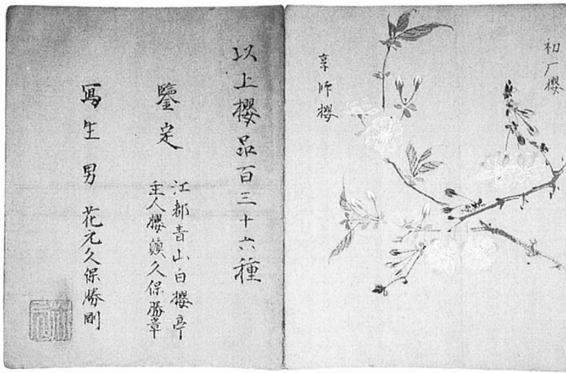 初厂櫻
櫻
以上櫻品百三十六種
鑒定
江都青山白櫻亭
主人櫻久保勝章
寫生 男 花元久保勝剛